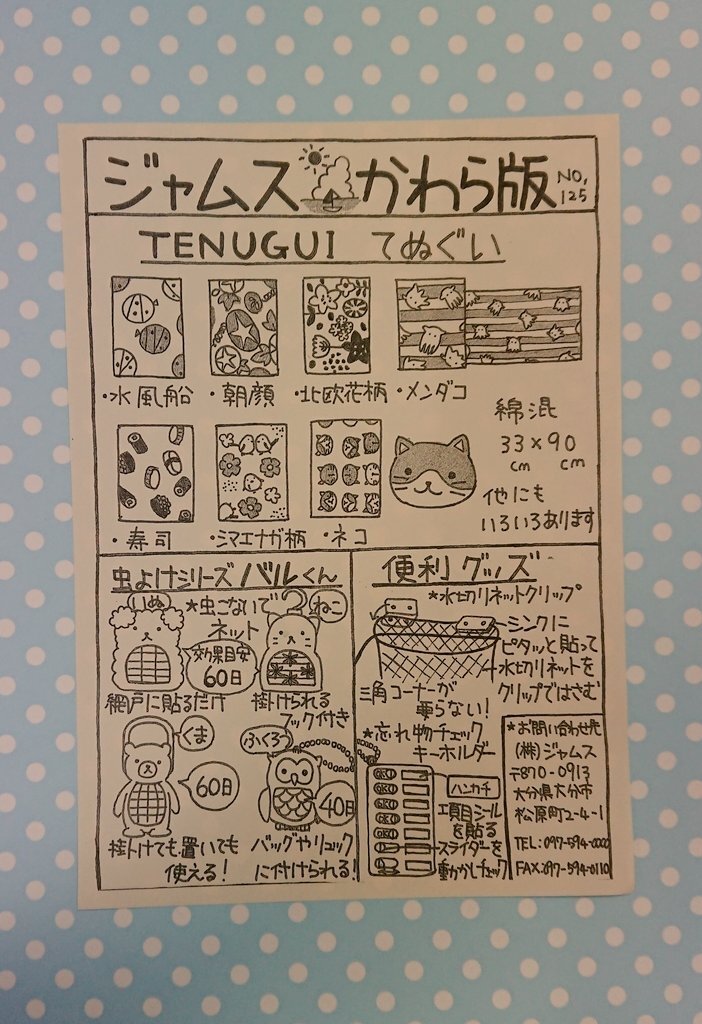 ジャムス かわら版 NO,125
TENUGUI てぬぐい
・水風船 ・朝顔 ・北欧花柄 ・メンダコ
綿混
33×90
cm cm
他にも
いろいろあります
・寿司 ・シマエナガ柄 ・ネコ
虫よけシリーズ バルくん
いぬ
★虫こないで
ネット
効果目安
60日
網戸に貼るだけ
ねこ
掛けられる
フック付き
くま
60日
掛けても置いても
使える!
ふくろー
40日
バッグやリュック
に付けられる!
便利グッズ
★水切りネットクリップ
シンクに
ピタッと貼って
水切りネットを
クリップではさむ
三角コーナーが
要らない!
★忘れ物チェック
キーホルダー
ハンカチ
項目シール
を貼る
スライダーを
動かしチェック
★お問い合わせ先
(株)ジャムス
〒870-0913
大分県大分市
松原町2-4-1
TEL:097-594-0000
FAX:097-594-0110